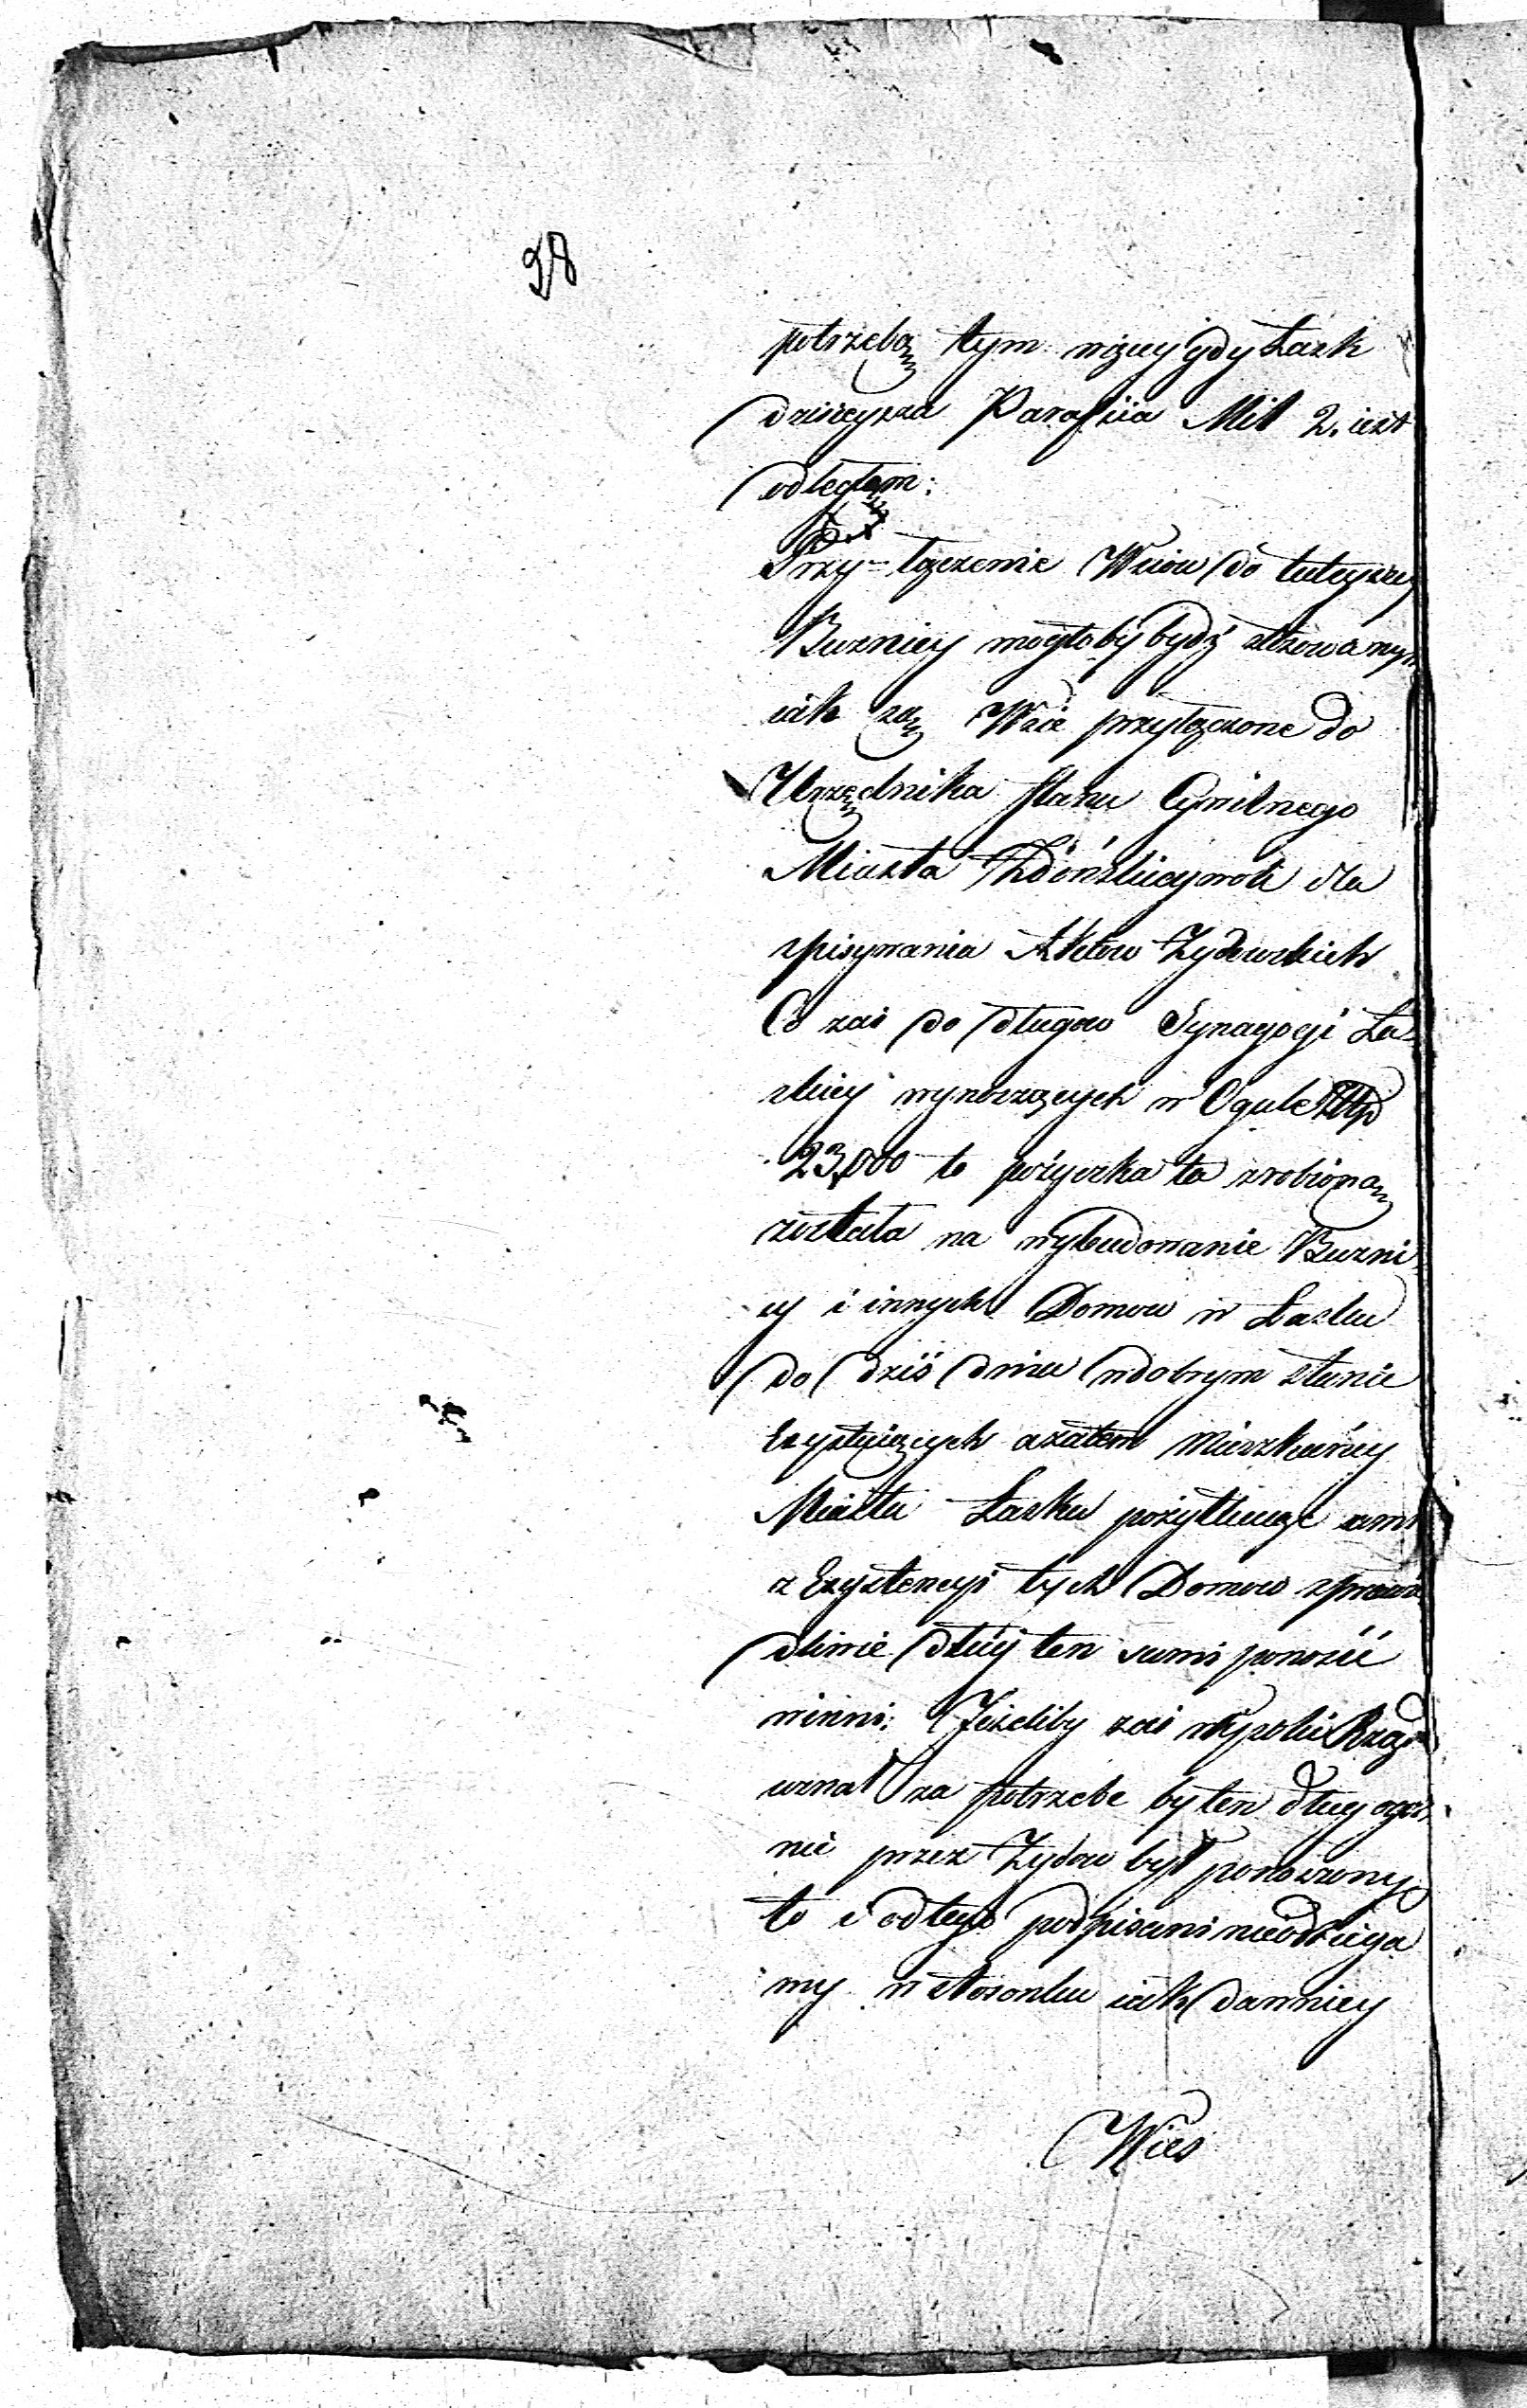 98
potrzebą tym więcy gdy Łask
dzisieysza Parafiia Mil 2. iest
odległem:
Przy-łączenie Wsiow do tuteyszey
Buznicy mogłoby bydź stosowanym
iak są Wsie przyłączone do
Urzędnika stanu Cywilnego
Miasta Zdońskieywoli dla
spisywania Aktow Zydowskich
Co zas do długow Synagogi Ła-
skiey wynoszących w Ogule Złp
23,000 to pożyczka ta zrobioną
została na wybudowanie Buzni-
cy i innych Domow w Łasku
do dziś dnia wdobrym stanie
Exystuiących azatem Mieszkańcy
Miasta Łasku pożytkuiąc sami
z Exystencyi tych Domow sprawie
dliwie dług ten sami ponosić
winni: Jeżeliby zas Rząd
uznał za potrzebe by ten dług ogol-
nie przez Zydow był ponoszony
to i od tego podpisani nieodstręga
my w stosonku iak dawniey
Wies